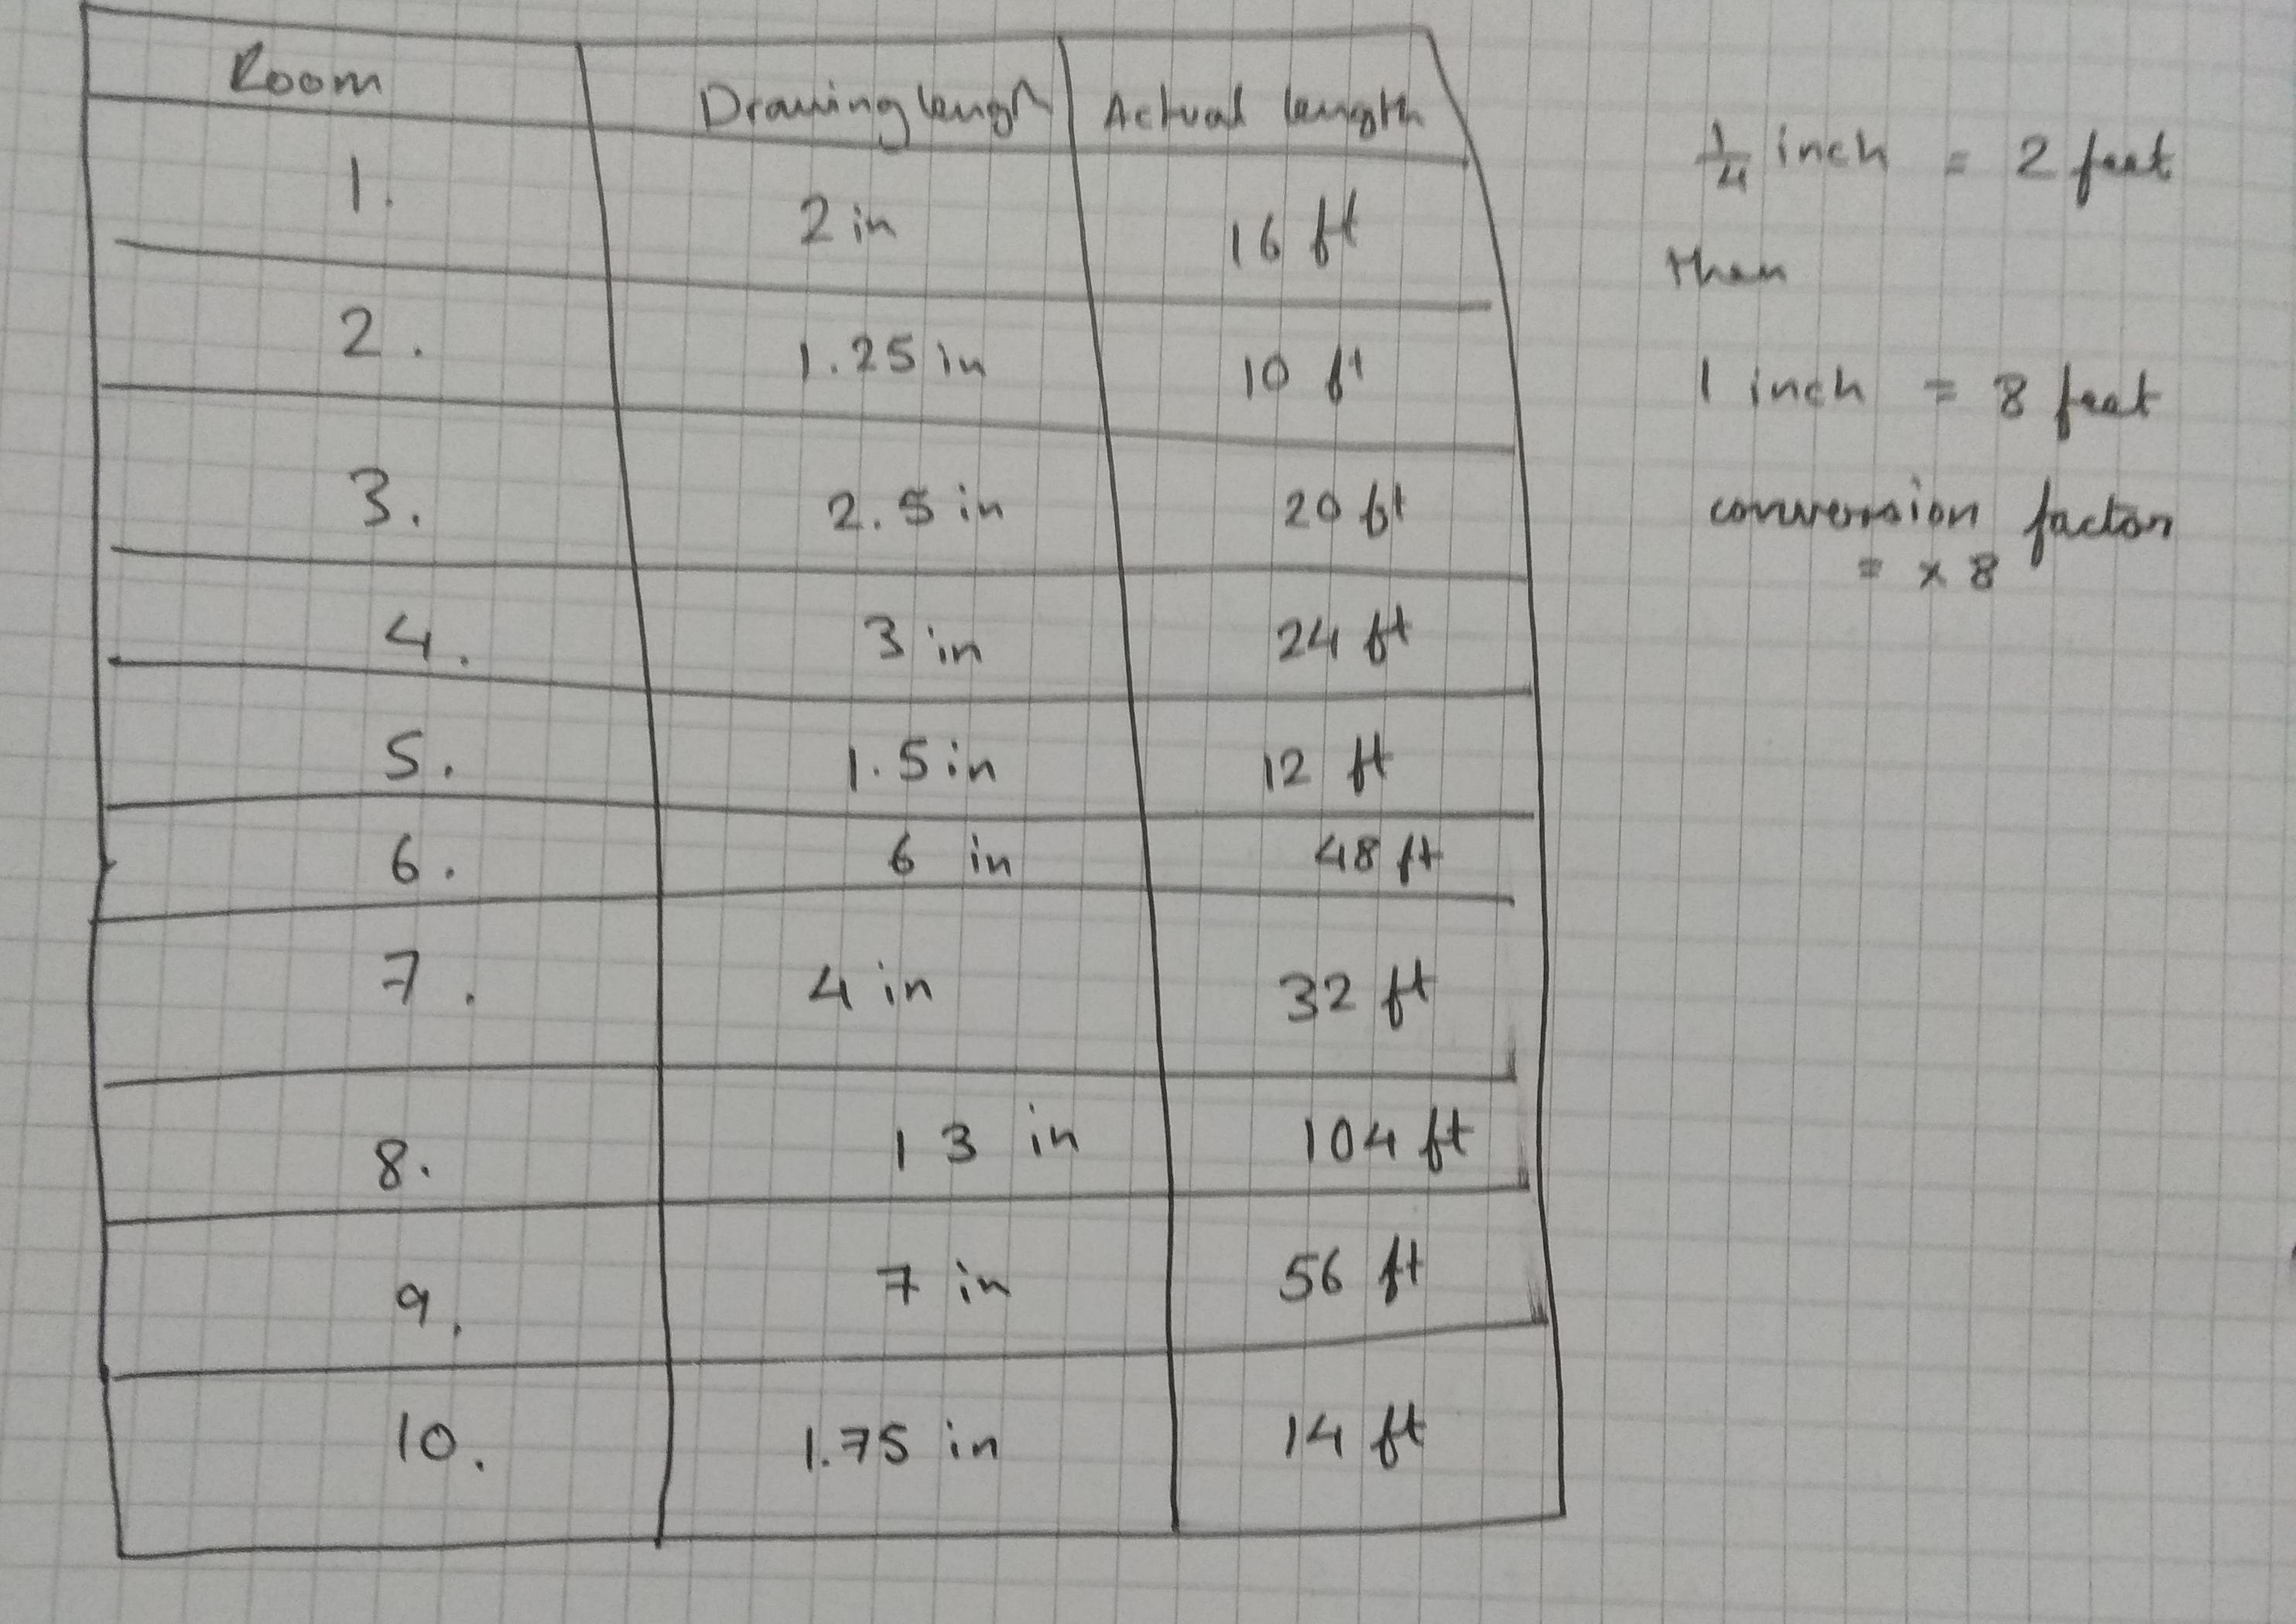 Room Drawing length Actual length
1. 2 in 16 ft
2. 1.25 in 10 ft
3. 2.5 in 20 ft
4. 3 in 24 ft
5. 1.5 in 12 ft
6. 6 in 48 ft
7. 4 in 32 ft
8. 13 in 104 ft
9. 7 in 56 ft
10. 1.75 in 14 ft
1/4 inch = 2 feet
then
1 inch = 8 feet
conversion factor
= × 8